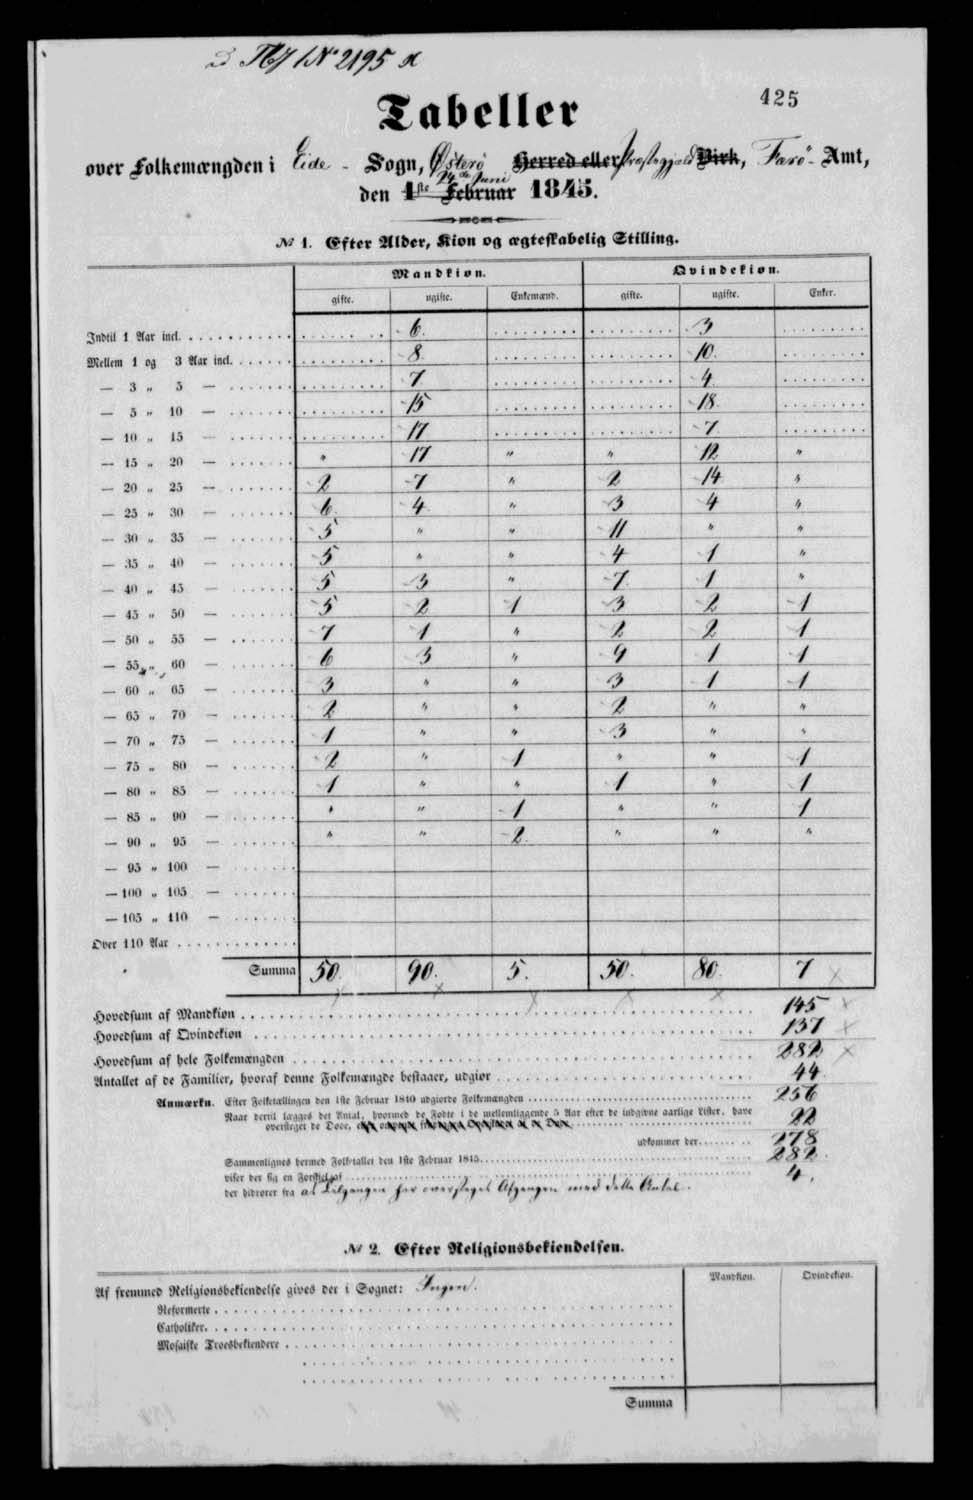 No 2195
425
Tabeller
over Folkemængden i Eide - Sogn, Østerø Herred eller Præstegjeld Birk, Færø - Amt,
24de Juni
den 1ste Februar 1845.
No 1. Efter Alder, Kiøn og ægteskabelig Stilling.
Mandkiøn. Qvindekiøn.
gifte. ugifte. Enkemænd. gifte. ugifte. Enker.
Indtil 1 Aar incl. 6. 3
Mellem 1 og 3 Aar incl. 8. 10.
— 3 „ 5 — 7. 4.
— 5 „ 10 — 15 18.
— 10 „ 15 — 17 7.
— 15 „ 20 — „ 17 „ „ 12 „
— 20 „ 25 — 2 7 „ 2 14 „
— 25 „ 30 — 6 4 „ 3 4 „
— 30 „ 35 — 5 „ „ 11 „ „
— 35 „ 40 — 5 „ „ 4 1 „
— 40 „ 45 — 5 3 „ 7. 1 „
— 45 „ 50 — 5 2 1 3 2 1
— 50 „ 55 — 7 1 „ 2 2 1
— 55 „ 60 — 6 3 „ 9 1 1
— 60 „ 65 — 3 „ „ 3 1 1
— 65 „ 70 — 2 „ „ 2 „ „
— 70 „ 75 — 1 „ „ 3 „ „
— 75 „ 80 — 2 „ 1 „ „ 1
— 80 „ 85 — 1 „ „ 1 „ 1
— 85 „ 90 — „ „ 1 „ „ 1
— 90 „ 95 — „ „ 2. „ „ „
— 95 „ 100 —
— 100 „ 105 —
— 105 „ 110 —
Over 110 Aar
Summa 50. 90. 5. 50. 80. 7
Hovedsum af Mandkiøn 145
Hovedsum af Qvindekiøn 137
Hovedsum af hele Folkemængden 282
Antallet af de Familier, hvoraf denne Folkemængde bestaaer, udgiør 44
Anmærkn. Efter Folketællingen den 1ste Februar 1840 udgiorde Folkemængden 256
Naar dertil lægges det Antal, hvormed de Fødte i de mellemliggende 5 Aar efter de indgivne aarlige Lister, have
oversteget de Døde, 22
udkommer der 278
Sammenlignes hermed Folketallet den 1ste Februar 1845 282.
viser der sig en Forskiel af 4.
der hidrører fra at Tilgangen har oversteget Afgangen med dette Antal.
No 2. Efter Religionsbekiendelsen.
Mandkiøn. Qvindekiøn.
Af fremmed Religionsbekiendelse gives der i Sognet: Ingen.
Reformerte
Catholiker
Mosaiske Troesbekiendere
Summa